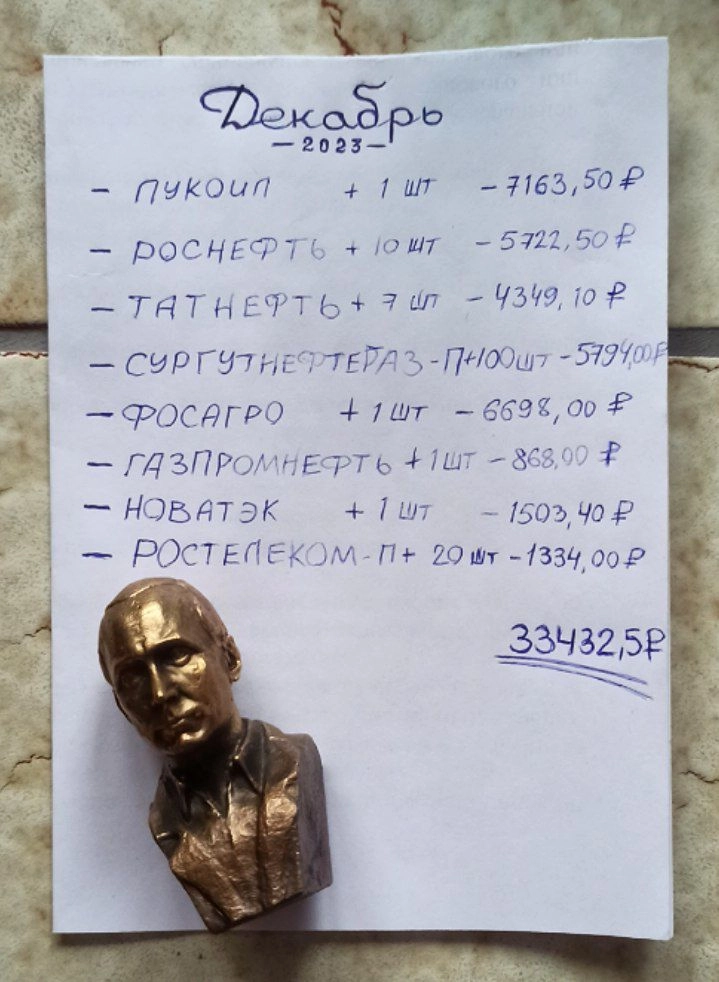 Декабрь
-2023-
- ЛУКОИЛ + 1 ШТ - 7163,50 ₽
- РОСНЕФТЬ + 10 ШТ - 5722,50 ₽
- ТАТНЕФТЬ + 7 ШТ - 4349,10 ₽
- СУРГУТНЕФТЕГАЗ-П+100 ШТ - 5794,00₽
- ФОСАГРО + 1 ШТ - 6698,00 ₽
- ГАЗПРОМНЕФТЬ + 1 ШТ - 868,00 ₽
- НОВАТЭК + 1 ШТ - 1503,40 ₽
- РОСТЕЛЕКОМ-П + 20 ШТ - 1334,00 ₽
33432,5₽